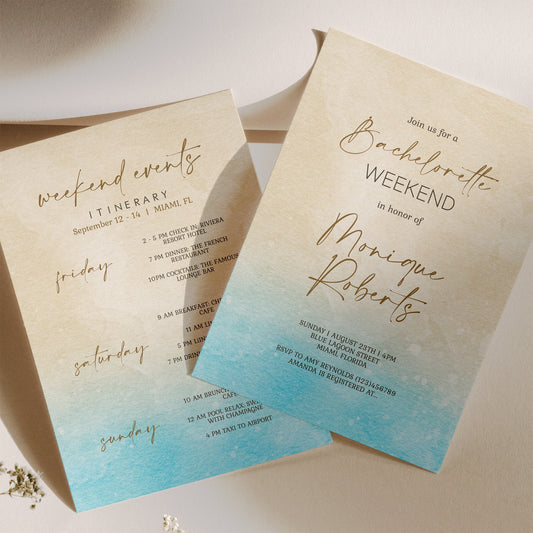 weekend events
ITINERARY
September 12 - 14 | MIAMI, FL
friday
2 - 5 PM CHECK IN: RIVIERA
RESORT HOTEL
7 PM DINNER: THE FRENCH
RESTAURANT
10PM COCKTAILS: THE FAMOUS
LOUNGE BAR
saturday
9 AM BREAKFAST:
CAFE
11 AM
7 PM
sunday
10 AM
CAFE
12 AM POOL RELAX:
WITH CHAMPAGNE
4 PM TAXI TO AIRPORT
Join us for a
Bachelorette
WEEKEND
in honor of
Monique
Roberts
SUNDAY | AUGUST 23TH | 4PM
BLUE LAGOON STREET
MIAMI FLORIDA
RSVP TO AMY REYNOLDS (123)456789
AMANDA IS REGISTERED AT...